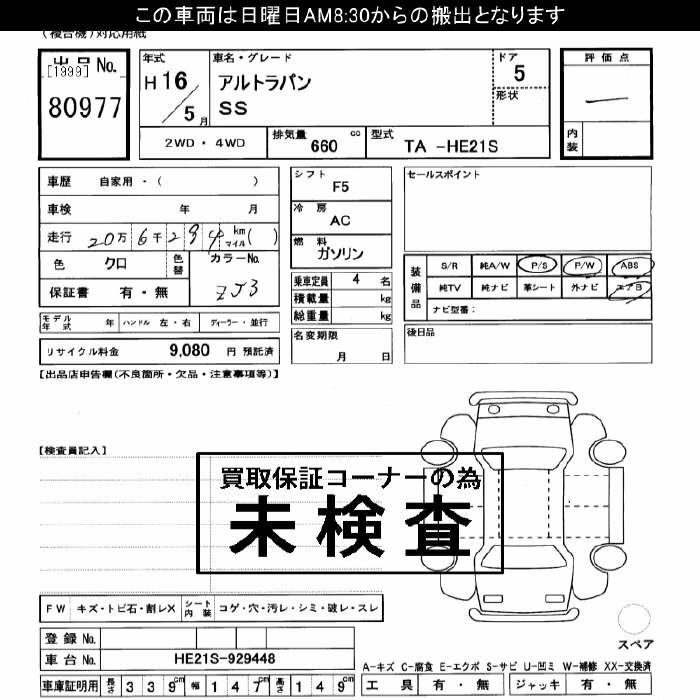 この車両は日曜日AM8:30からの搬出となります
(複合機)対応用紙
出品 No.
[1999]
80977
年式
H 16
/ 5 月
車名・グレード
アルトラパン
SS
ドア
5
形状
評価点
―
内装
2WD・4WD
排気量
660 cc
型式
TA -HE21S
車歴 自家用・( )
車検 年 月
走行 20万 6千 2 9 4 km マイル( )
色 クロ
色替
カラーNo.
ZJ3
保証書 有・無
モデル年式 年 ハンドル 左・右 ディーラー・並行
リサイクル料金 9,080 円 預託済
シフト
F5
冷房
AC
燃料
ガソリン
乗車定員 4 名
積載量 kg
総重量 kg
名変期限
月 日
セールスポイント
装備品
S/R 純A/W P/S P/W ABS
純TV 純ナビ 革シート 外ナビ エアB
ナビ型番:
後日品
【出品店申告欄(不良箇所・欠品・注意事項等)】
【検査員記入】
買取保証コーナーの為
未検査
FW キズ・トビ石・割レX シート内装 コゲ・穴・汚レ・シミ・破レ・スレ
登録 No.
車台 No. HE21S-929448
スペア
A-キズ C-腐食 E-エクボ S-サビ U-凹ミ W-補修 XX-交換済
車庫証明用 長さ 3 3 9 cm 幅 1 4 7 cm 高さ 1 4 9 cm
工具 有・無 ジャッキ 有・無